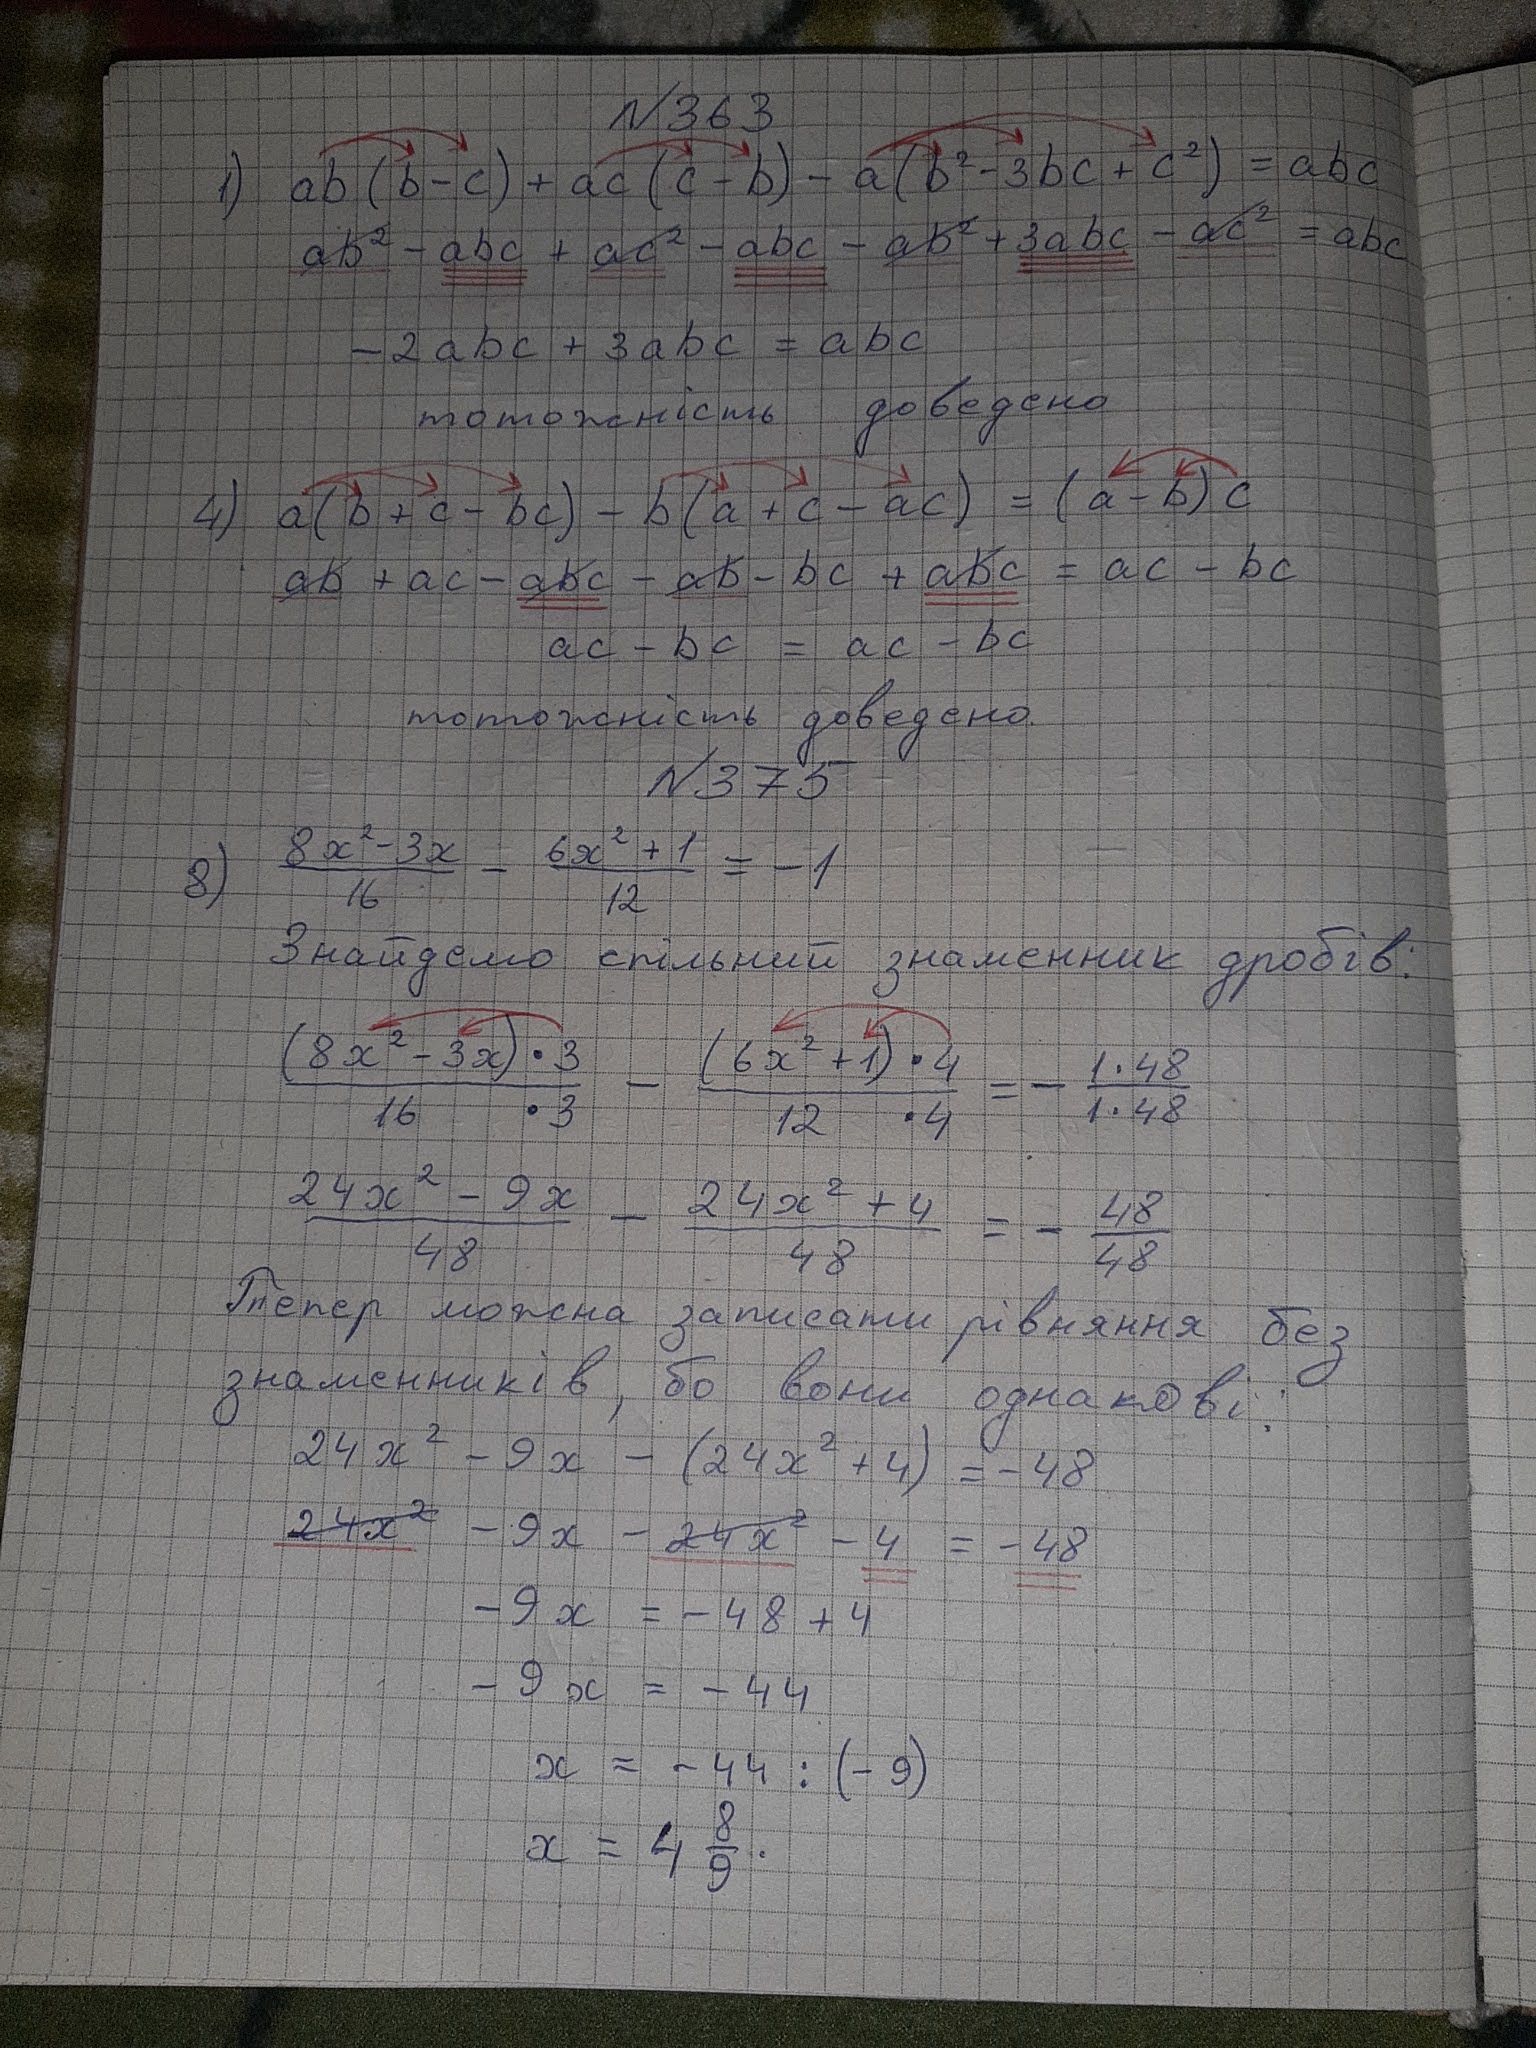 №363
1) ab(b-c)+ac(c-b)-a(b²-3bc+c²)=abc
ab²-abc+ac²-abc-ab²+3abc-ac²=abc
-2abc+3abc=abc
тотожність доведено
4) a(b+c-bc)-b(a+c-ac)=(a-b)c
ab+ac-abc-ab-bc+abc=ac-bc
ac-bc=ac-bc
тотожність доведено.
№375
8) (8x²-3x)/16 - (6x²+1)/12 = -1
Знайдемо спільний знаменник дробів:
(8x²-3x)·3/16·3 - (6x²+1)·4/12·4 = - 1·48/1·48
(24x²-9x)/48 - (24x²+4)/48 = - 48/48
Тепер можна записати рівняння без
знаменників, бо вони однакові:
24x²-9x-(24x²+4)=-48
24x²-9x-24x²-4=-48
-9x=-48+4
-9x=-44
x=-44:(-9)
x=4 8/9.